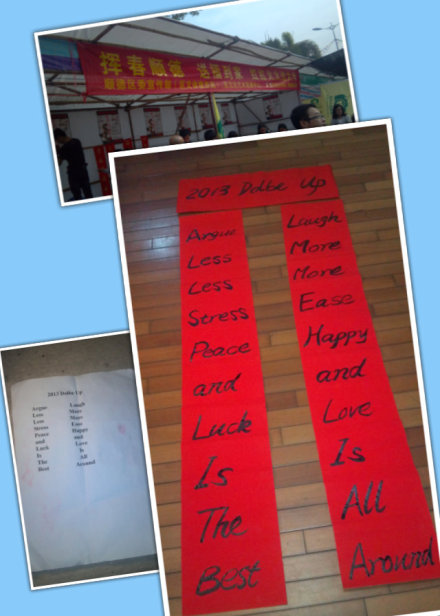 挥春顺德 送福到家
2013 Dolbe Up
Argue
Less
Less
Stress
Peace
and
Luck
Is
The
Best
Laugh
More
More
Ease
Happy
and
Love
Is
All
Around
2013 Dolbe Up
Argue Laugh
Less More
Less More
Stress Ease
Peace Happy
and and
Luck Love
Is Is
The All
Best Around